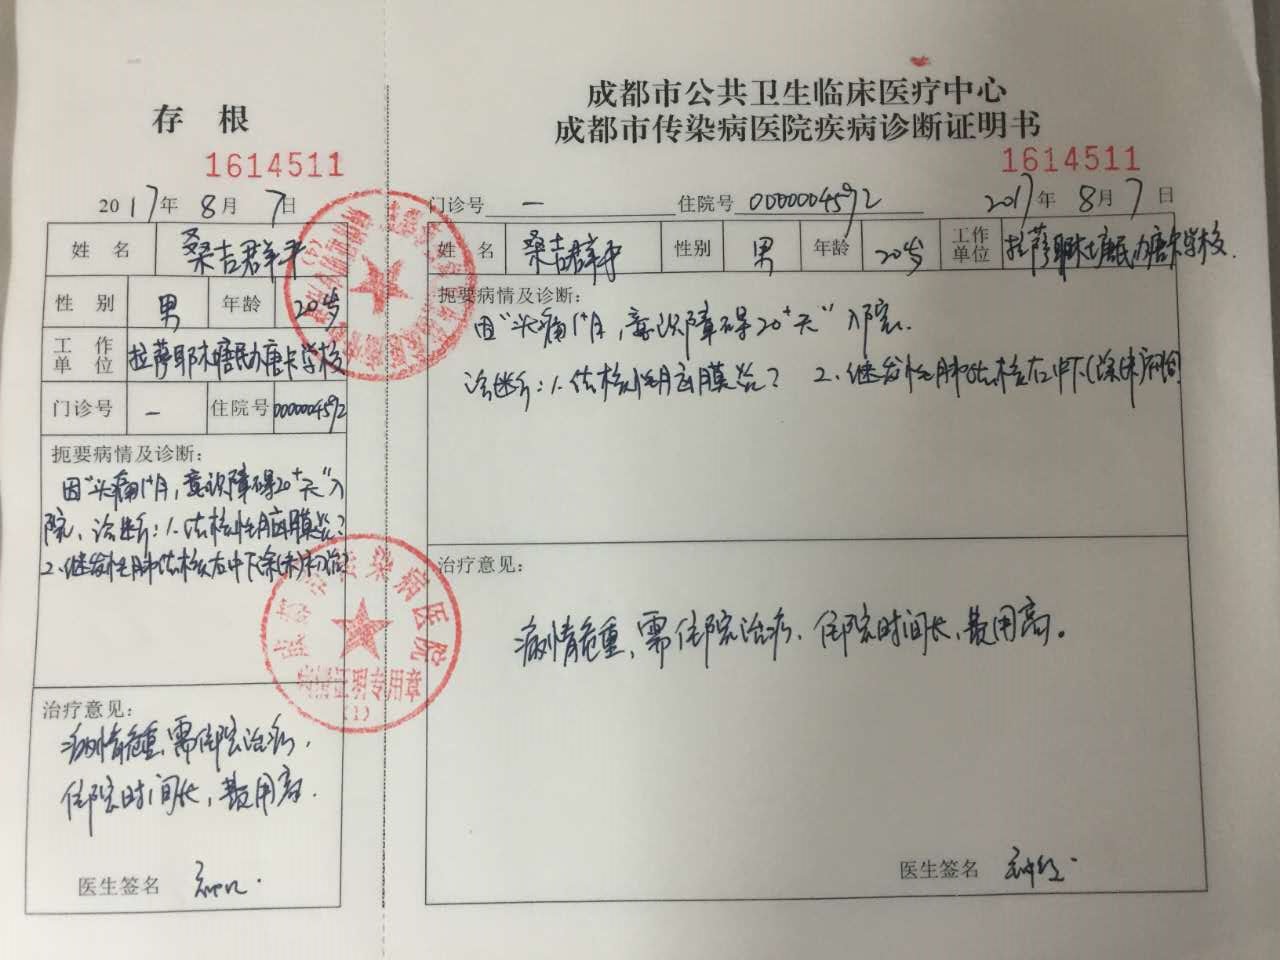 存 根
1614511
2017年 8月 7日
姓 名 桑吉群平
性 别 男 年龄 20岁
工 作 单 位 拉萨耶木塘民办唐卡学校
门诊号 — 住院号 0000004592
扼要病情及诊断:
因“头痛1+月,意识障碍20+天”入
院、诊断:1.结核性脑膜炎?
2.继发性肺结核左中下涂(未)初治
治疗意见:
病情危重,需住院治疗,
住院时间长,费用高.
医生签名
成都市公共卫生临床医疗中心
成都市传染病医院疾病诊断证明书
1614511
门诊号 — 住院号 0000004592 2017年 8月 7日
姓 名 桑吉群平 性别 男 年龄 20岁 工作单位 拉萨耶木塘民办唐卡学校.
扼要病情及诊断:
因“头痛1+月,意识障碍20+天”入院.
诊断:1.结核性脑膜炎? 2.继发性肺结核左中下(涂未)初治
治疗意见:
病情危重,需住院治疗,住院时间长,费用高。
医生签名
成都市传染病医院
病情证明专用章
(1)